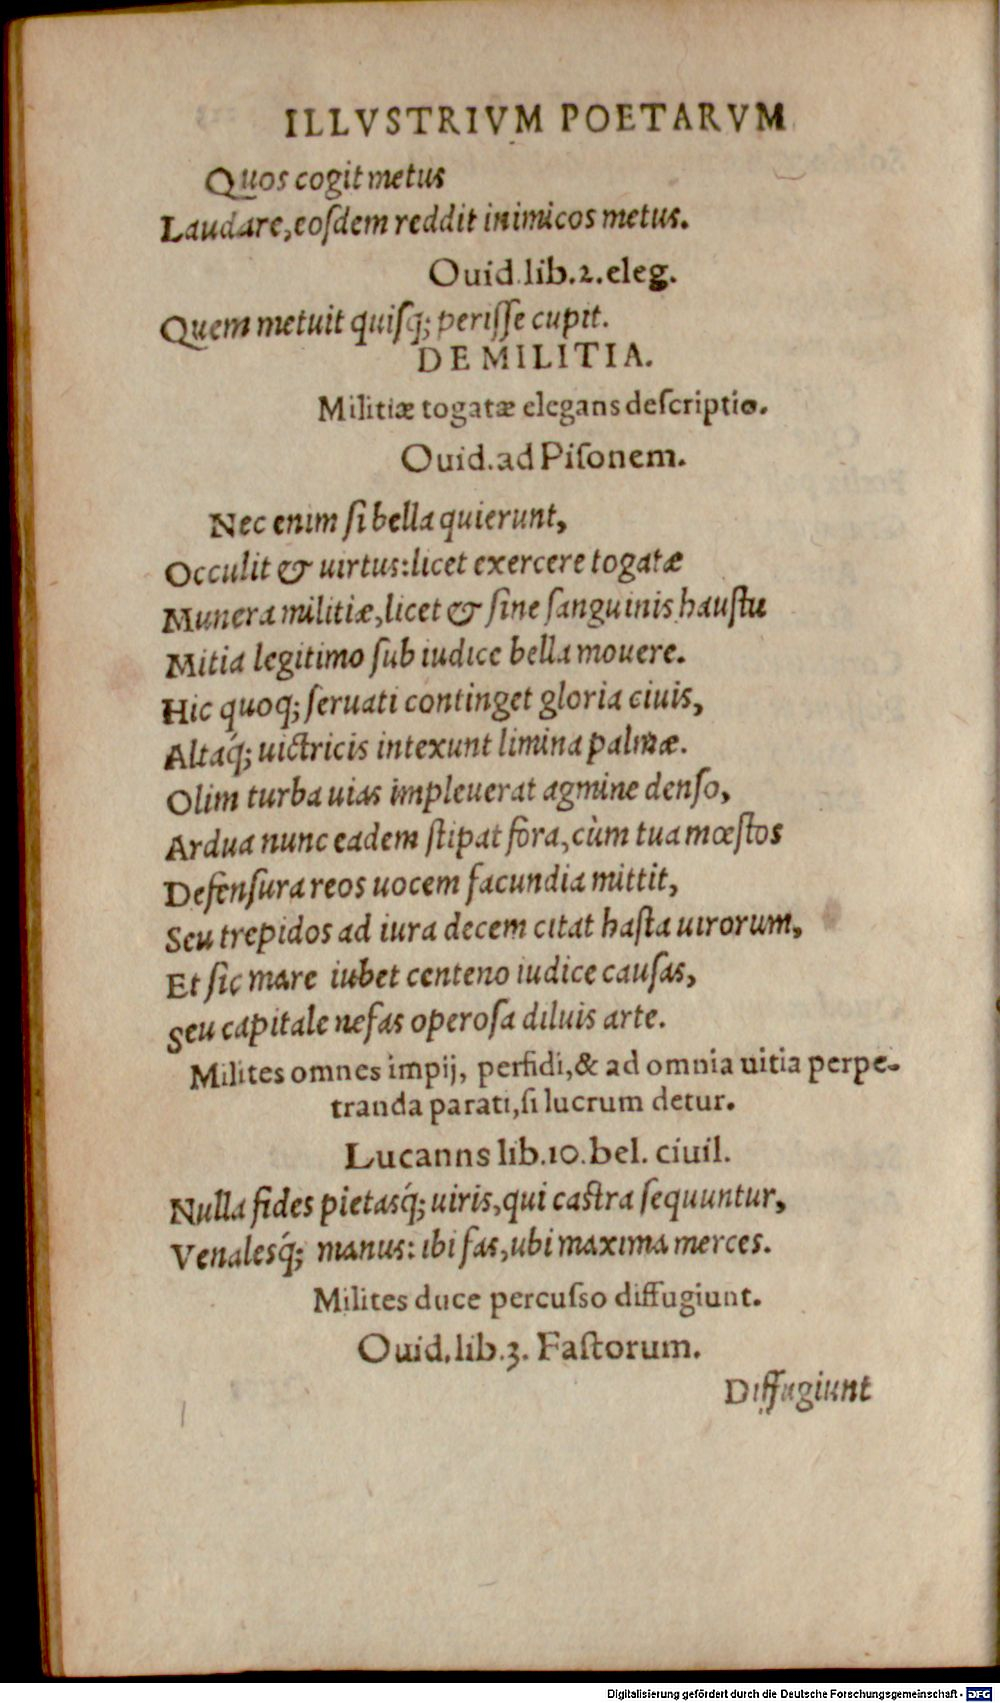 ILLVSTRIVM POETARVM
Quos cogit metus
Laudare, eoſdem reddit inimicos metus.
Ouid. lib. 2. eleg.
Quem metuit quiſq; periſſe cupit.
DE MILITIA.
Militiæ togatæ elegans deſcriptio.
Ouid. ad Piſonem.
Nec enim ſi bella quierunt,
Occulit & uirtus: licet exercere togatæ
Munera militiæ, licet & ſine ſanguinis hauſtu
Mitia legitimo ſub iudice bella mouere.
Hic quoq; ſeruati continget gloria ciuis,
Altaq́; uictricis intexunt limina palmæ.
Olim turba uias impleuerat agmine denſo,
Ardua nunc eadem ſtipat fora, cùm tua mœſtos
Defenſura reos uocem facundia mittit,
Seu trepidos ad iura decem citat haſta uirorum,
Et ſic mare iubet centeno iudice cauſas,
Seu capitale nefas operoſa diluis arte.
Milites omnes impij, perfidi, & ad omnia uitia perpe-
tranda parati, ſi lucrum detur.
Lucanns lib. 10. bel. ciuil.
Nulla fides pietasq́; uiris, qui caſtra ſequuntur,
Venalesq́; manus: ibi fas, ubi maxima merces.
Milites duce percuſso diffugiunt.
Ouid. lib. 3. Faſtorum.
Diffugiunt
Digitalisierung gefördert durch die Deutsche Forschungsgemeinschaft - DFG